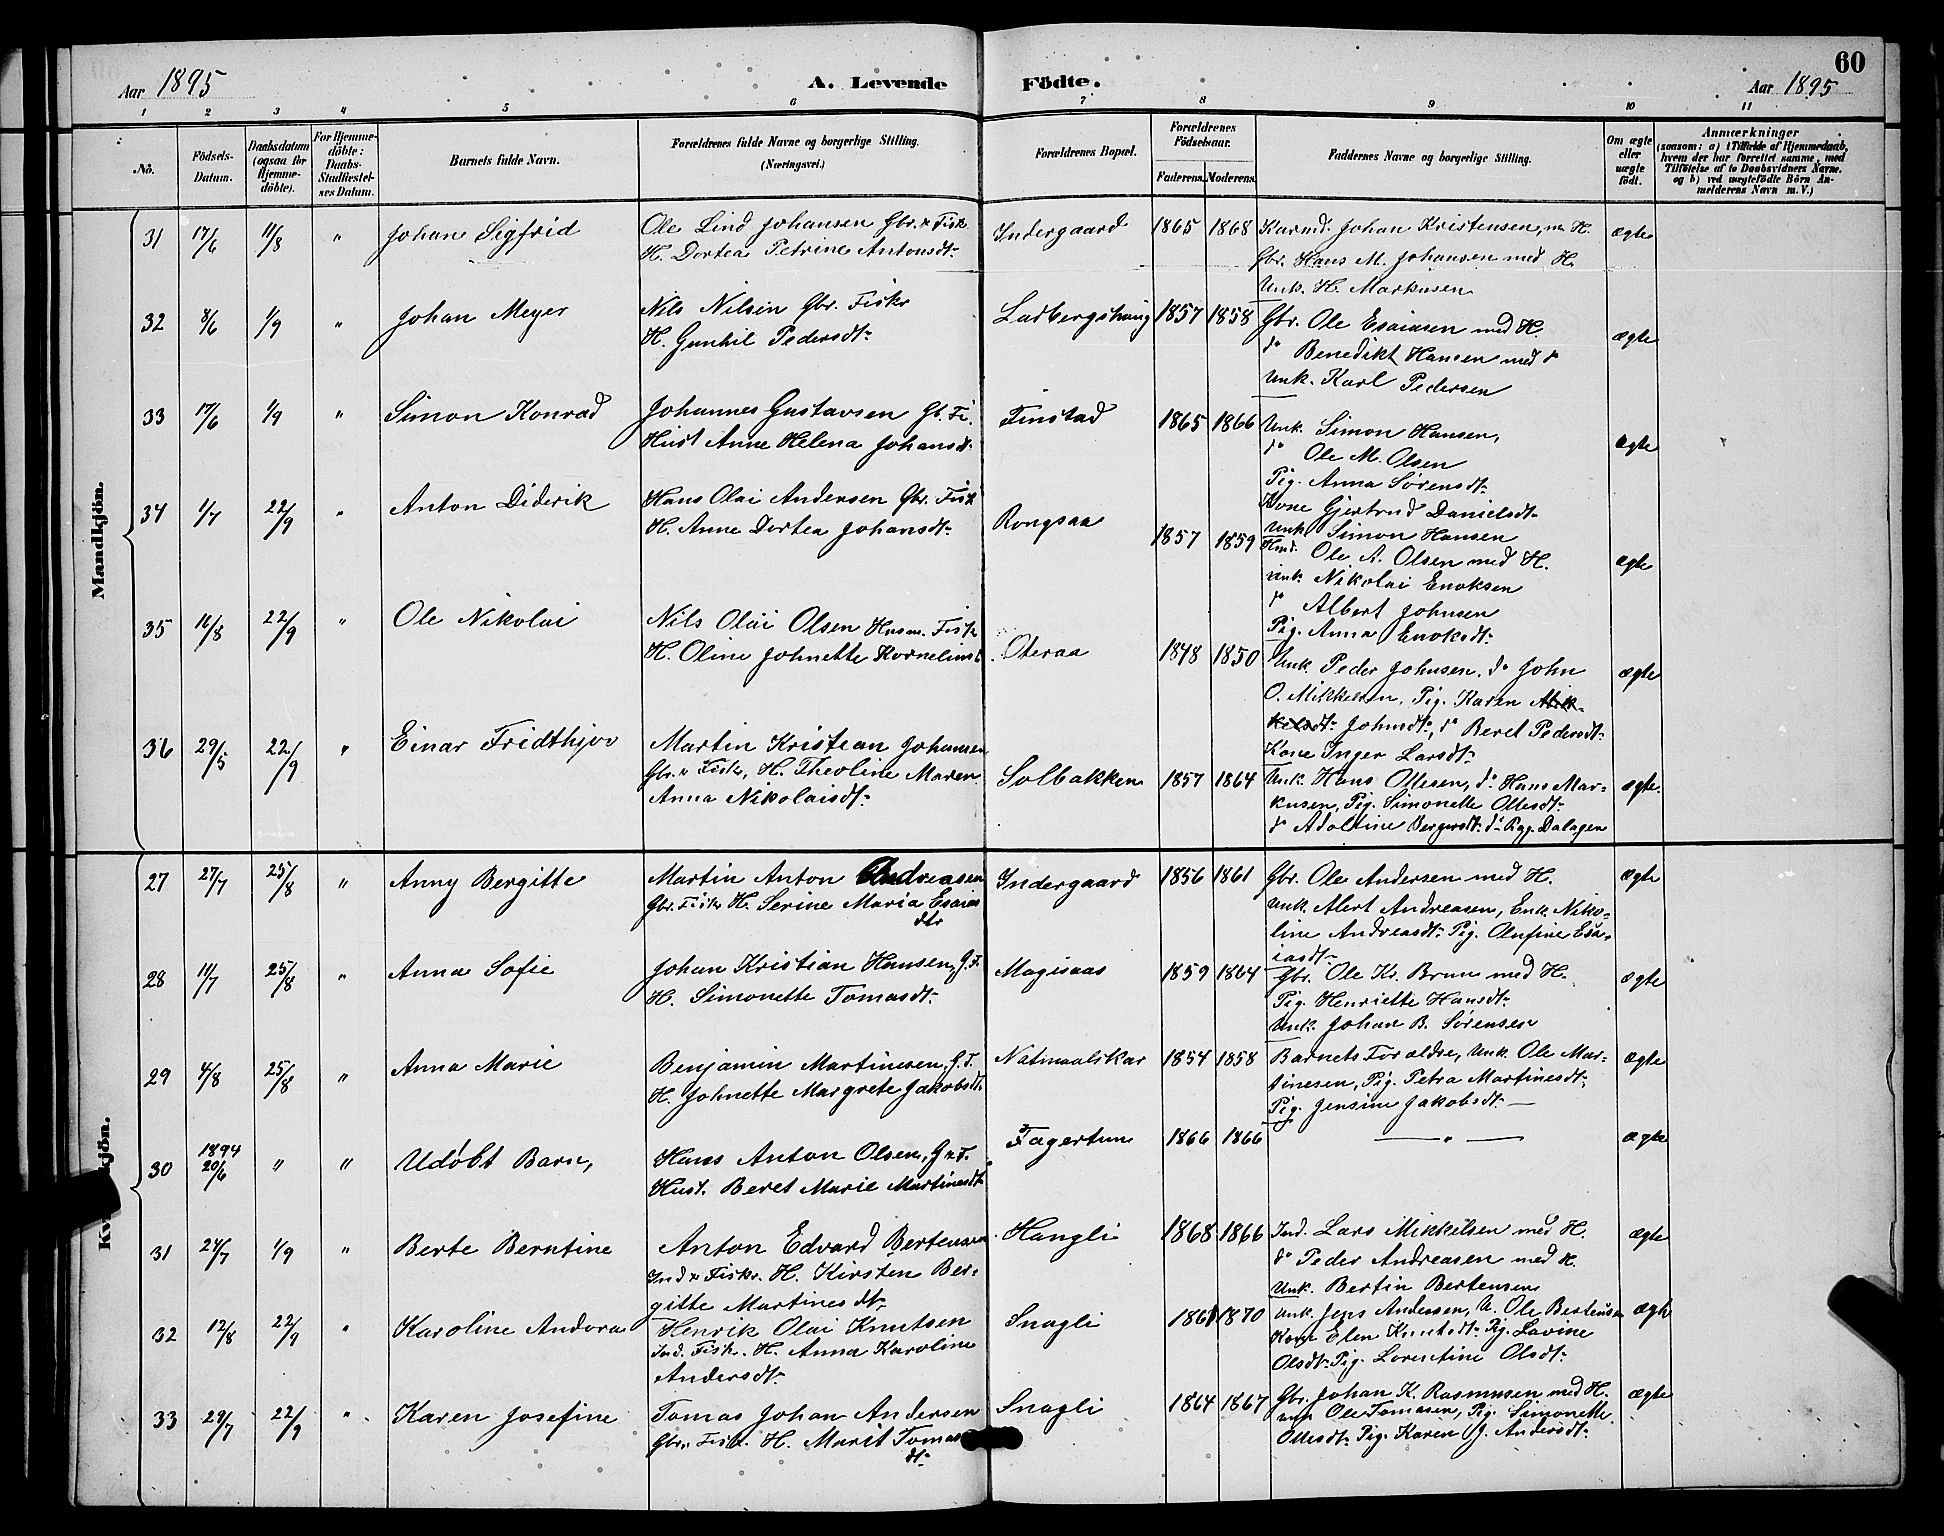 60
Aar 1895
A. Levende
Födte.
Aar 1895
1 2 3 4 5 6 7 8 9 10 11
No.
Födsels-Datum.
Daabsdatum (ogsaa for Hjemme-döbte).
For Hjemme-döbte: Daabs-Stadfæstel-ses Datum.
Barnets fulde Navn.
Forældrenes fulde Navne og borgerlige Stilling.
(Næringsvei.)
Forældrenes Bopæl.
Forældrenes Födselsaar.
Faderens. Moderens.
Faddernes Navne og borgerlige Stilling.
Om ægte eller uægte födt.
Anmærkninger
(saasom: a) i Tilfælde af Hjemmedaab,
hvem der har forrettet samme, med
Tilföielse af to Daabsvidners Navne.
og b) ved uægtefödte Börn An-
melderens Navn m. V.)
Mandkjön.
31 17/6 11/8 " Johan Sigfrid
Ole Lind Johansen Gbr. & Fisk
H. Dortea Petrine Antonsdt.
Indergaard 1865 1868
Karmd. Johan Kristensen, m H.
Gbr. Hans M. Johansen med H.
Unk. H. Markusen
ægte
32 8/6 1/9 " Johan Meyer
Nils Nilsen Gbr. Fiskr
H. Gunhil Pedersdt.
1857 1858
Gbr. Ole Esaiasen med H.
do Benedikt Hansen med do
Unk. Karl Pedersen
ægte
33 17/6 1/9 " Simon Konrad
Johannes Gustavsen G. Fi.
Hust Anne Helena Johansdt.
Finstad 1865 1866
Unk. Simon Hansen,
do Ole M. Olsen
Pig. Anna Sørensdt.
Kone Gjertrud Danielsdt.
Unk Simon Hansen
ægte
34 1/7 22/9 " Anton Diderik
Hans Olai Andersen Gbr. Fisk
H. Anne Dortea Johansdt.
Rongsaa 1857 1859
Hmd. Ole A. Olsen med H.
Unk. Nikolai Enoksen
do Albert Johnsen
Pig. Anna Enoksdt.
ægte
35 16/8 22/9 " Ole Nikolai
Nils Olai Olsen Husm. Fisk
H. Oline Johnette Kornelius
Oteraa 1848 1850
Unk. Peder Johnsen, do John
O. Mikkelsen, Pig. Karen Mik-
kelsdt. Johnsdt., do Beret Pedersdt.
Kone Inger Larsdt.
ægte
36 29/5 22/9 " Einar Fridthjov
Martin Kristian Johansen
Gbr. & Fiskr, H. Theoline Maren
Anna Nikolaisdt.
Solbakken 1857 1864
Unk. Hans Ottesen, do Hans Mar-
kusen, Pig. Simonette Ottesdt.
do Adoltine Bergersdt. do Rag. Dalagen
ægte.
27 27/7 25/8 " Anny Bergitte
Martin Anton Andreassen
Gbr. Fiskr H. Serine Maria Esaias
dtr
Indergaard 1856 1861
Gbr. Ole Andersen med H.
Unk. Alert Andreasen, Enk. Niko-
line Andreasdt. Pig. Olufine Esa-
iasdt.
ægte
28 11/7 25/8 " Anna Sofie
Johan Kristian Hansen, G. F.
H. Simonette Tomasdt.
Magisaas 1859 1864
Gbr. Ole Kr. Brun med H.
Pig. Henriette Hansdt.
Unk. Johan B. Sørensen
ægte
29 4/8 25/8 " Anna Marie
Benjamin Martinesen, G. F.
H. Johnette Margrete Jakobsdt.
Natmaalskar 1854 1858
Barnets Forældre, Unk. Ole Mar-
tinesen, Pig. Petra Martinesdt.
Pig. Jensine Jakobsdt.
ægte
30 1894 20/6 " " Udøbt Barn,
Hans Anton Olsen, G & F.
Hust. Beret Marie Martinesdt.
Fagertun 1866 1866
— " —
ægte
31 24/7 1/9 " Berte Berntine
Anton Edvard Bertensen
Ind & Fiskr. H. Kirsten Ber-
gitte Martinesdt.
Hangli 1868 1866
Ind. Lars Mikkelsen med H.
do Peder Andreasen med H.
Unk. Bertin Bertensen
ægte
32 12/8 22/9 " Karoline Andora
Henrik Olai Knutsen
Ind. Fisk. H. Anna Karoline
Andersdt.
Snagli 1861 1870
Unk. Jens Andersen, U. Ole Bertensen
Kone Elen Knutsdt. Pig. Lavine
Olsdt. Pig. Lorentine Olsdt.
ægte
33 29/7 22/9 " Karen Josefine
Tomas Johan Andersen
Gbr. Fisk. H. Marit Tomas
dt.
Snagli 1864 1867
Gbr. Johan K. Rasmusen med H.
Unk Ole Tomasen, Pig. Simonette
Ottesdt. Pig. Karen J. Andersdt.
ægte